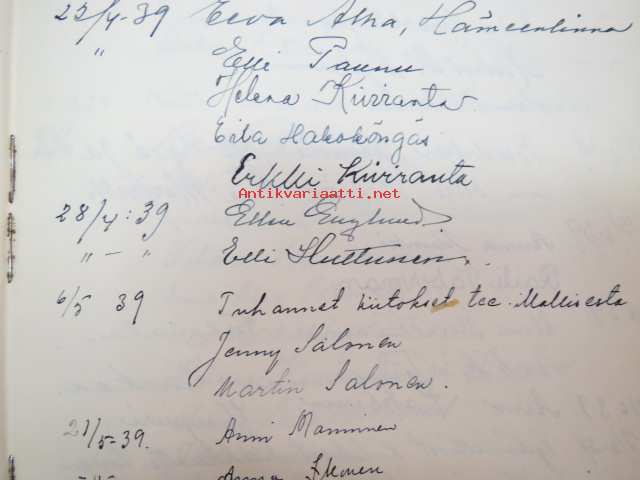 23/4-39 Eeva Alha, Hämeenlinna
" Elli Taunu
Helena Kiviranta
Eila Hakoköngäs
Erkki Kiviranta
Antikvariaatti.net
28/4:39 Ellen Englund
" – " Elli Huttunen.
6/5 39 Tuhannet kiitokset
Jenny Salonen
Martin Salonen.
21/5-39. Anni Manninen
Ikonen